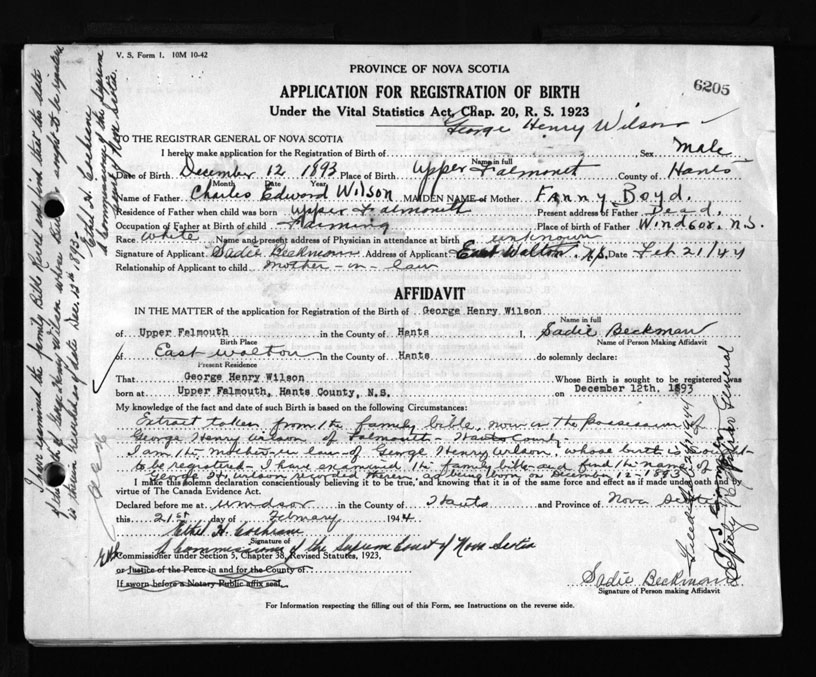 V. S. Form 1. 10M 10-42
PROVINCE OF NOVA SCOTIA
6205
APPLICATION FOR REGISTRATION OF BIRTH
Under the Vital Statistics Act, Chap. 20, R. S. 1923
TO THE REGISTRAR GENERAL OF NOVA SCOTIA
I hereby make application for the Registration of Birth of George Henry Wilson Sex Male
Name in full
Date of Birth December 12 1893 Place of Birth Upper Falmouth County of Hants
Month Date Year
Name of Father Charles Edward Wilson MAIDEN NAME of Mother Fanny Boyd.
Residence of Father when child was born Upper Falmouth Present address of Father Dead.
Occupation of Father at Birth of child Farming Place of birth of Father Windsor, N.S.
Race White Name and present address of Physician in attendance at birth unknown
Signature of Applicant Sadie Beckman Address of Applicant East Walton, N.S. Date Feb 21/44
Relationship of Applicant to child mother-in-law
AFFIDAVIT
IN THE MATTER of the application for Registration of the Birth of George Henry Wilson
Name in full
of Upper Falmouth in the County of Hants I, Sadie Beckman
Birth Place Name of Person Making Affidavit
of East Walton in the County of Hants do solemnly declare:
Present Residence
That George Henry Wilson Whose Birth is sought to be registered was
born at Upper Falmouth, Hants County, N.S. on December 12th, 1893
My knowledge of the fact and date of such Birth is based on the following Circumstances:
Extract taken from the family bible, now in the possession of
George Henry Wilson of Falmouth - Hants County.
I am the mother-in law of George Henry Wilson, whose birth is sought
to be registered - I have examined the family bible and find the name of
George H. Wilson recorded therein, as being born on December 12 - 1893
I make this solemn declaration conscientiously believing it to be true, and knowing that it is of the same force and effect as if made under oath and by
virtue of The Canada Evidence Act.
Declared before me at Windsor in the County of Hants and Province of Nova Scotia
this 21st day of February 1944
Ethel H. Cochrane
Signature of
A Commissioner of the Supreme Court of Nova Scotia
Commissioner under Section 5, Chapter 38, Revised Statutes, 1923,
or Justice of the Peace in and for the County of
If sworn before a Notary Public affix seal.
Sadie Beckman
Signature of Person making Affidavit
For Information respecting the filling out of this Form, see Instructions on the reverse side.
I have examined the family Bible and find that the date
of the birth of George Henry Wilson whose birth sought to be registered
is therein
Dec. 12th, 1893.
Ethel H. Cochrane
A Commissioner of the Supreme
Court of Nova Scotia.
Deputy Registrar General